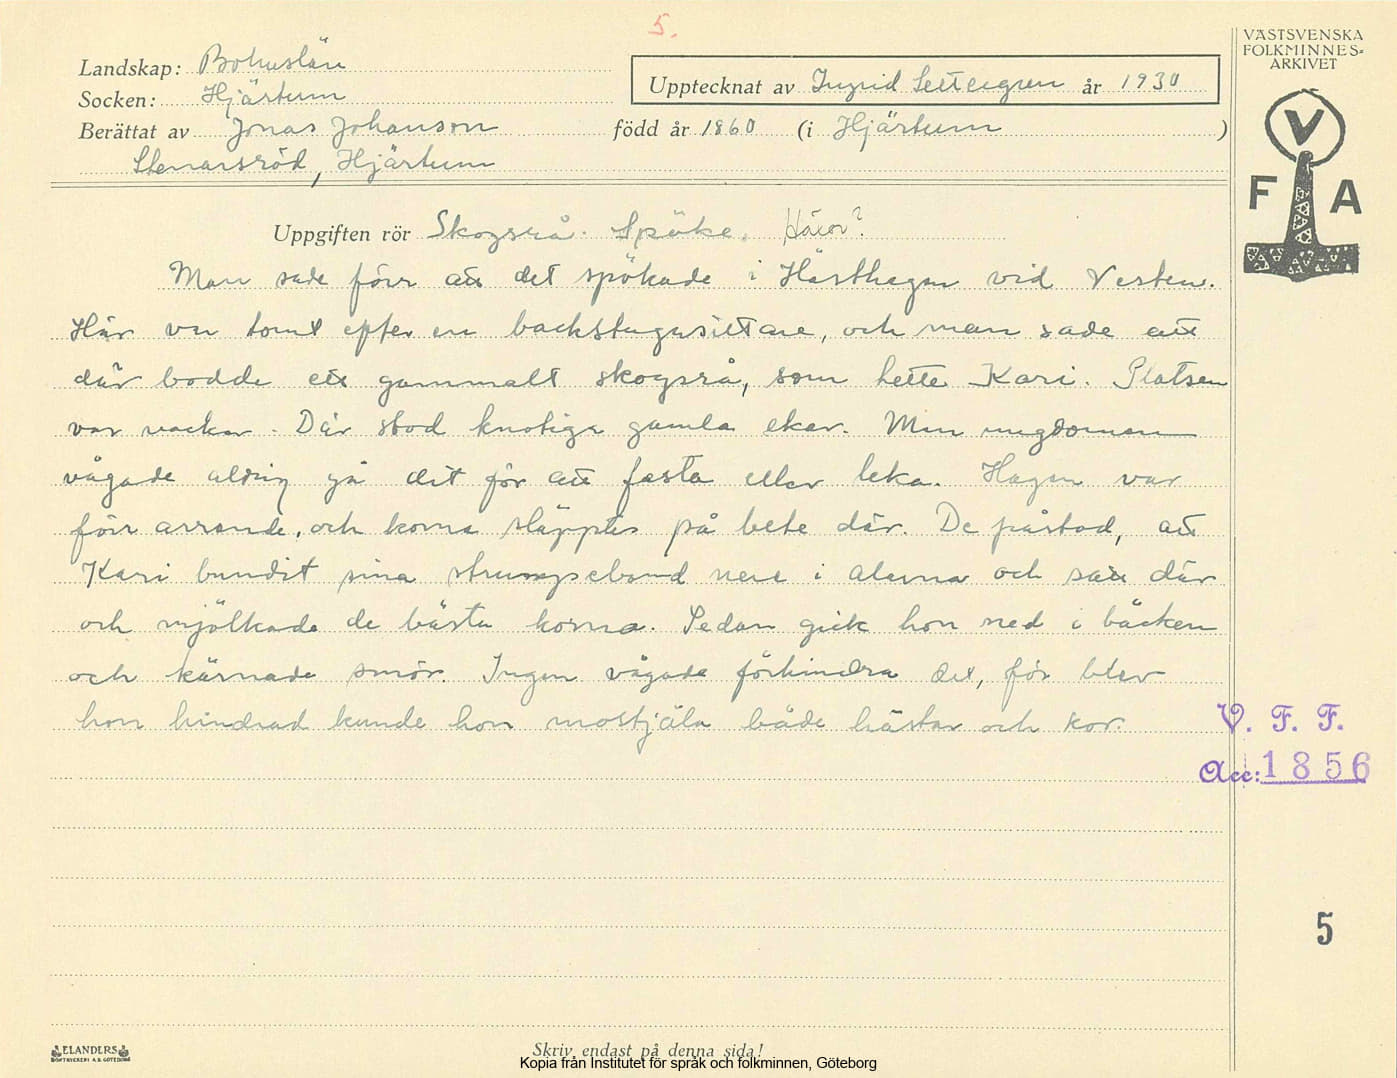 5.
VÄSTSVENSKA
FOLKMINNES=
ARKIVET
Landskap: Bohuslän
Upptecknat av Ingrid Settergren år 1930
Socken: Hjärtum
Berättat av Jonas Johanson född år 1860 (i Hjärtum )
Stenarsröd, Hjärtum
V
F A
Uppgiften rör Skogsrå. Spöke.
Man sade förr att det spökade i Hästhagen vid Vesten.
Här var tomt efter en backstugusittare, och man sade att
där bodde ett gammalt skogsrå, som hette Kari. Platsen
var vacker. Där stod knotiga gamla ekar. Men ungdomen
vågade aldrig gå dit för att festa eller leka. Hagen var
förr arrende, och korna släpptes på bete där. De påstod, att
Kari bundit sina strumpeband nere i alarna och satt där
och mjölkade de bästa korna. Sedan gick hon ned i bäcken
och kärnade smör. Ingen vågade förhindra det, för blev
hon hindrad kunde hon mostjäla både hästar och kor.
V. F. F.
Acc: 1856
5
ELANDERS
BOKTRYCKERI A.B. GÖTEBORG
Skriv endast på denna sida!
Kopia från Institutet för språk och folkminnen, Göteborg